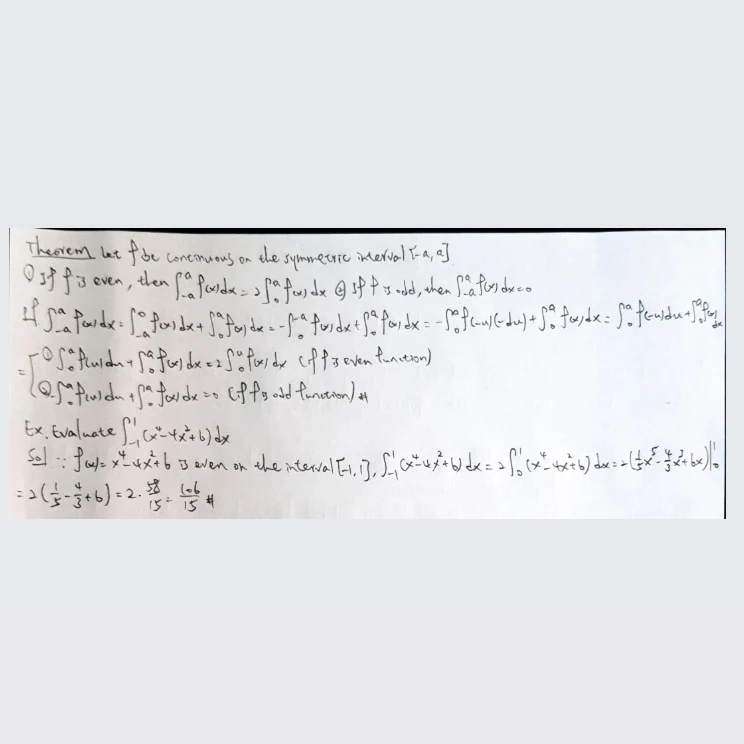 Theorem Let f be continuous on the symmetric interval [-a, a]
① If f is even, then ∫_{-a}^{a} f(x)dx = 2∫_0^a f(x)dx ② If f is odd, then ∫_{-a}^{a} f(x)dx = 0
pf ∫_{-a}^{a} f(x)dx = ∫_{-a}^{0} f(x)dx + ∫_0^a f(x)dx = -∫_0^{-a} f(x)dx + ∫_0^a f(x)dx = -∫_0^a f(-u)(-du) + ∫_0^a f(x)dx = ∫_0^a f(-u)du + ∫_0^a f(x)dx
= [ ① ∫_0^a f(u)du + ∫_0^a f(x)dx = 2∫_0^a f(x)dx (if f is even function)
② -∫_0^a f(u)du + ∫_0^a f(x)dx = 0 (if f is odd function) #
Ex. Evaluate ∫_{-1}^{1} (x^4-4x^2+6)dx
Sol ∵ f(x) = x^4-4x^2+6 is even on the interval [-1, 1], ∫_{-1}^{1} (x^4-4x^2+6)dx = 2∫_0^1 (x^4-4x^2+6)dx = 2(1/5 x^5 - 4/3 x^3 + 6x)|_0^1
= 2(1/5 - 4/3 + 6) = 2 · 58/15 = 106/15 #